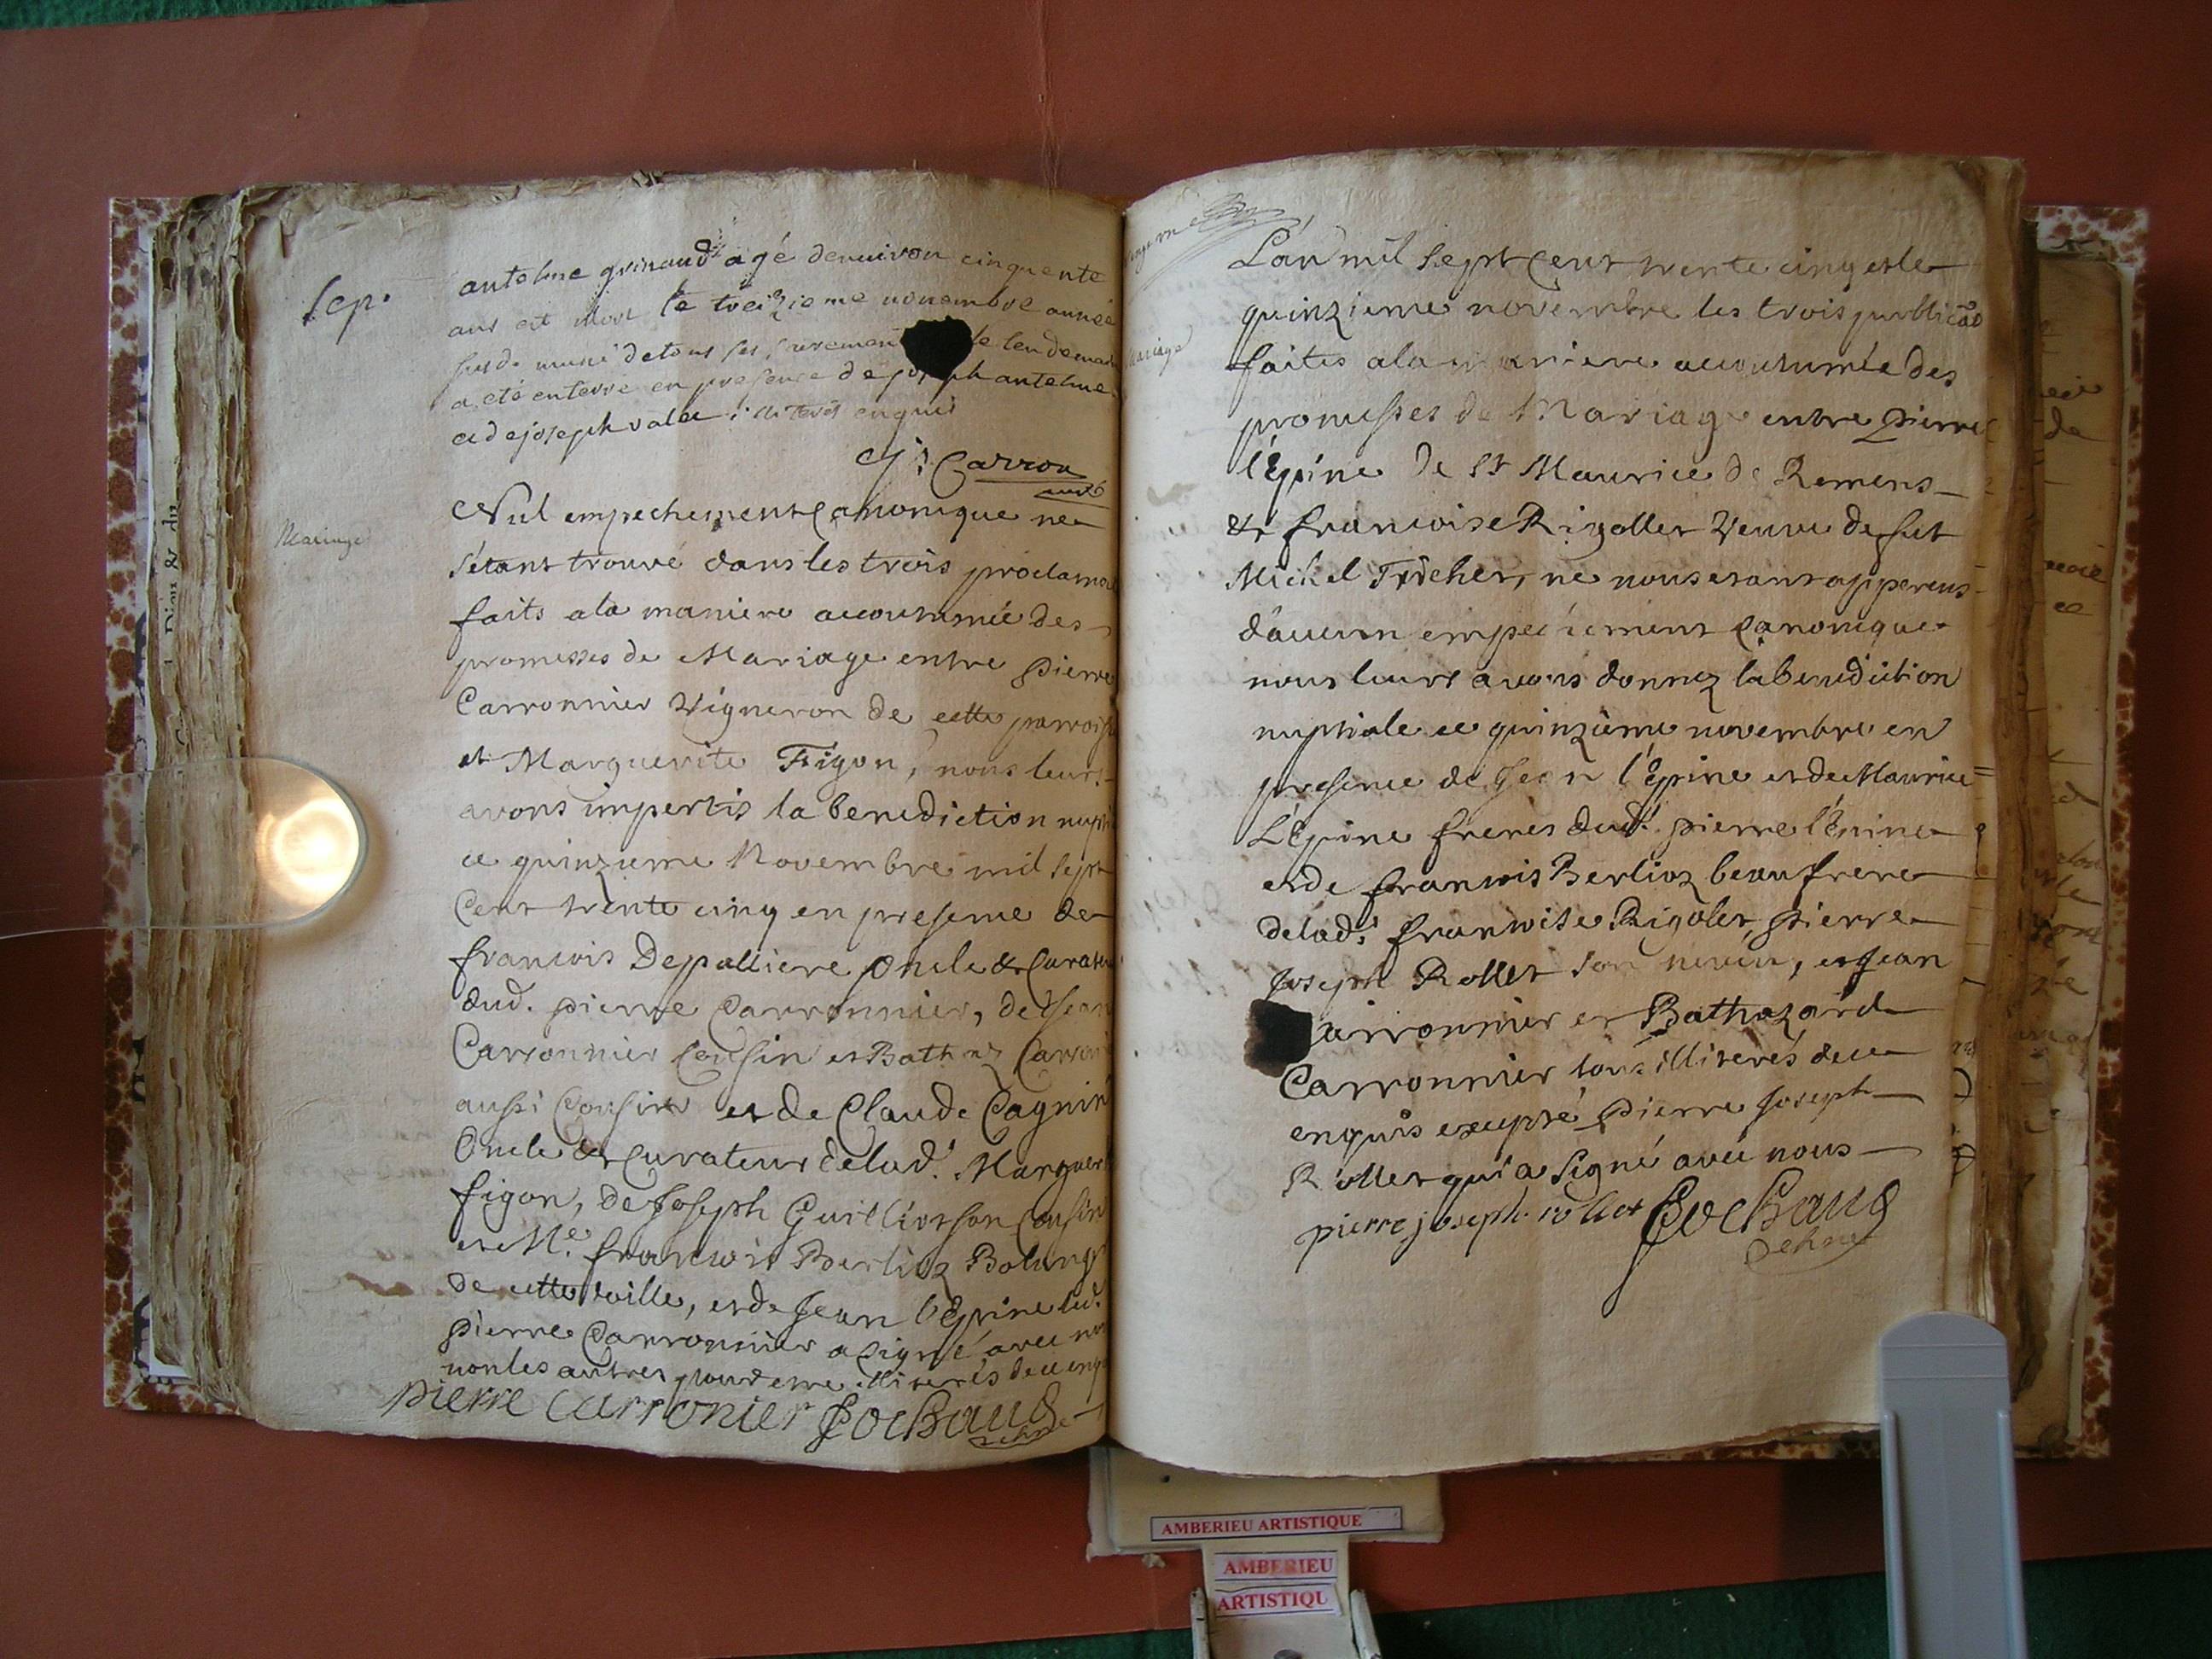 Sep.
antelme grinand agé denuiron cinquente
ans est mort le treizieme nouembre année
susde muni detous ses sacremens le lendemain
a eté enterré en presence de joseph antelme
et de joseph valee illiterés enquis
Carron
curé
Mariage
Nul empechement Canonique ne
s'étant trouvé dans les trois proclama
faits a la maniere accoutumée des
promesses de Mariage entre pierre
Carronnier Vigneron de cette parroisse
et Marguerite Figon, nous leurs
avons impertis la benediction nupti
ce quinzieme Novembre mil sept
Cent trente cinq en presence de
francois Depalliere Oncle & Curateur
dud. pierre Carronnier, de Jean
Carronnier Cousin et Bathaz Carron
aussi Cousin et de Claude Cagnin
Oncle & Curateur de lad. Marguer
figon, de Joseph Guilliorson Cousin
et Me. francois Berlioz Bolange
de cette ville, et de Jean l'Epine led.
Pierre Carronnier a signé avec nous
non les autres pour etre illiterés de ce enquis
pierre carronier Cochaud
Mariage
L'an mil sept Cent trente cinq et le
quinzieme novembre les trois publicao
faites a la maniere accoutumée des
promesses de Mariage entre Pierre
l'Epine de St Maurice de Remens
& francoise Rigollet Veuve de fut
Michel Frôchet, ne nous etant apperens
d'aucun empechement Canonique
nous leurs avons donnez la benediction
nuptiale ce quinzieme novembre en
presence de Jean l'Epine et de Maurice
L'Epine freres dud. pierre l'Epine
et de francois Berlioz beaufrere
de lad. francoise Rigolet, Pierre
Joseph Rollet son neveu, et Jean
arronnier et Bathazard
Carronnier tous illiterés de ce
enquis excepté Pierre Joseph
Rollet qui a signé avec nous
pierre joseph rollet Cochaud
AMBERIEU ARTISTIQUE
AMBERIEU
ARTISTIQU